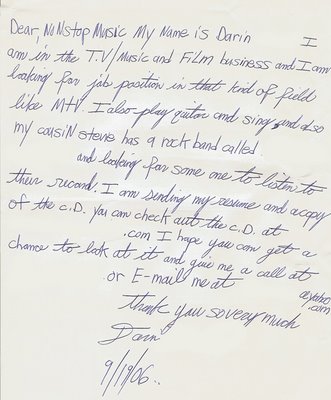 Dear, NoNstop Music My Name is Darin I
am in the T.V/Music and Film business and I am
looking for job position in that kind of field
like MH. I also play guitar and sing and also
my cousiN stevie has a rock band called
and looking for some one to listen to
their record. I am sending my resume and a copy
of the c.D. you can check autt the c.D. at
.com I hope you can get a
chance to look at it and give me a call at
or E-mail me at @yahoo
.com
thank you so very much
Darin
9/19/06..